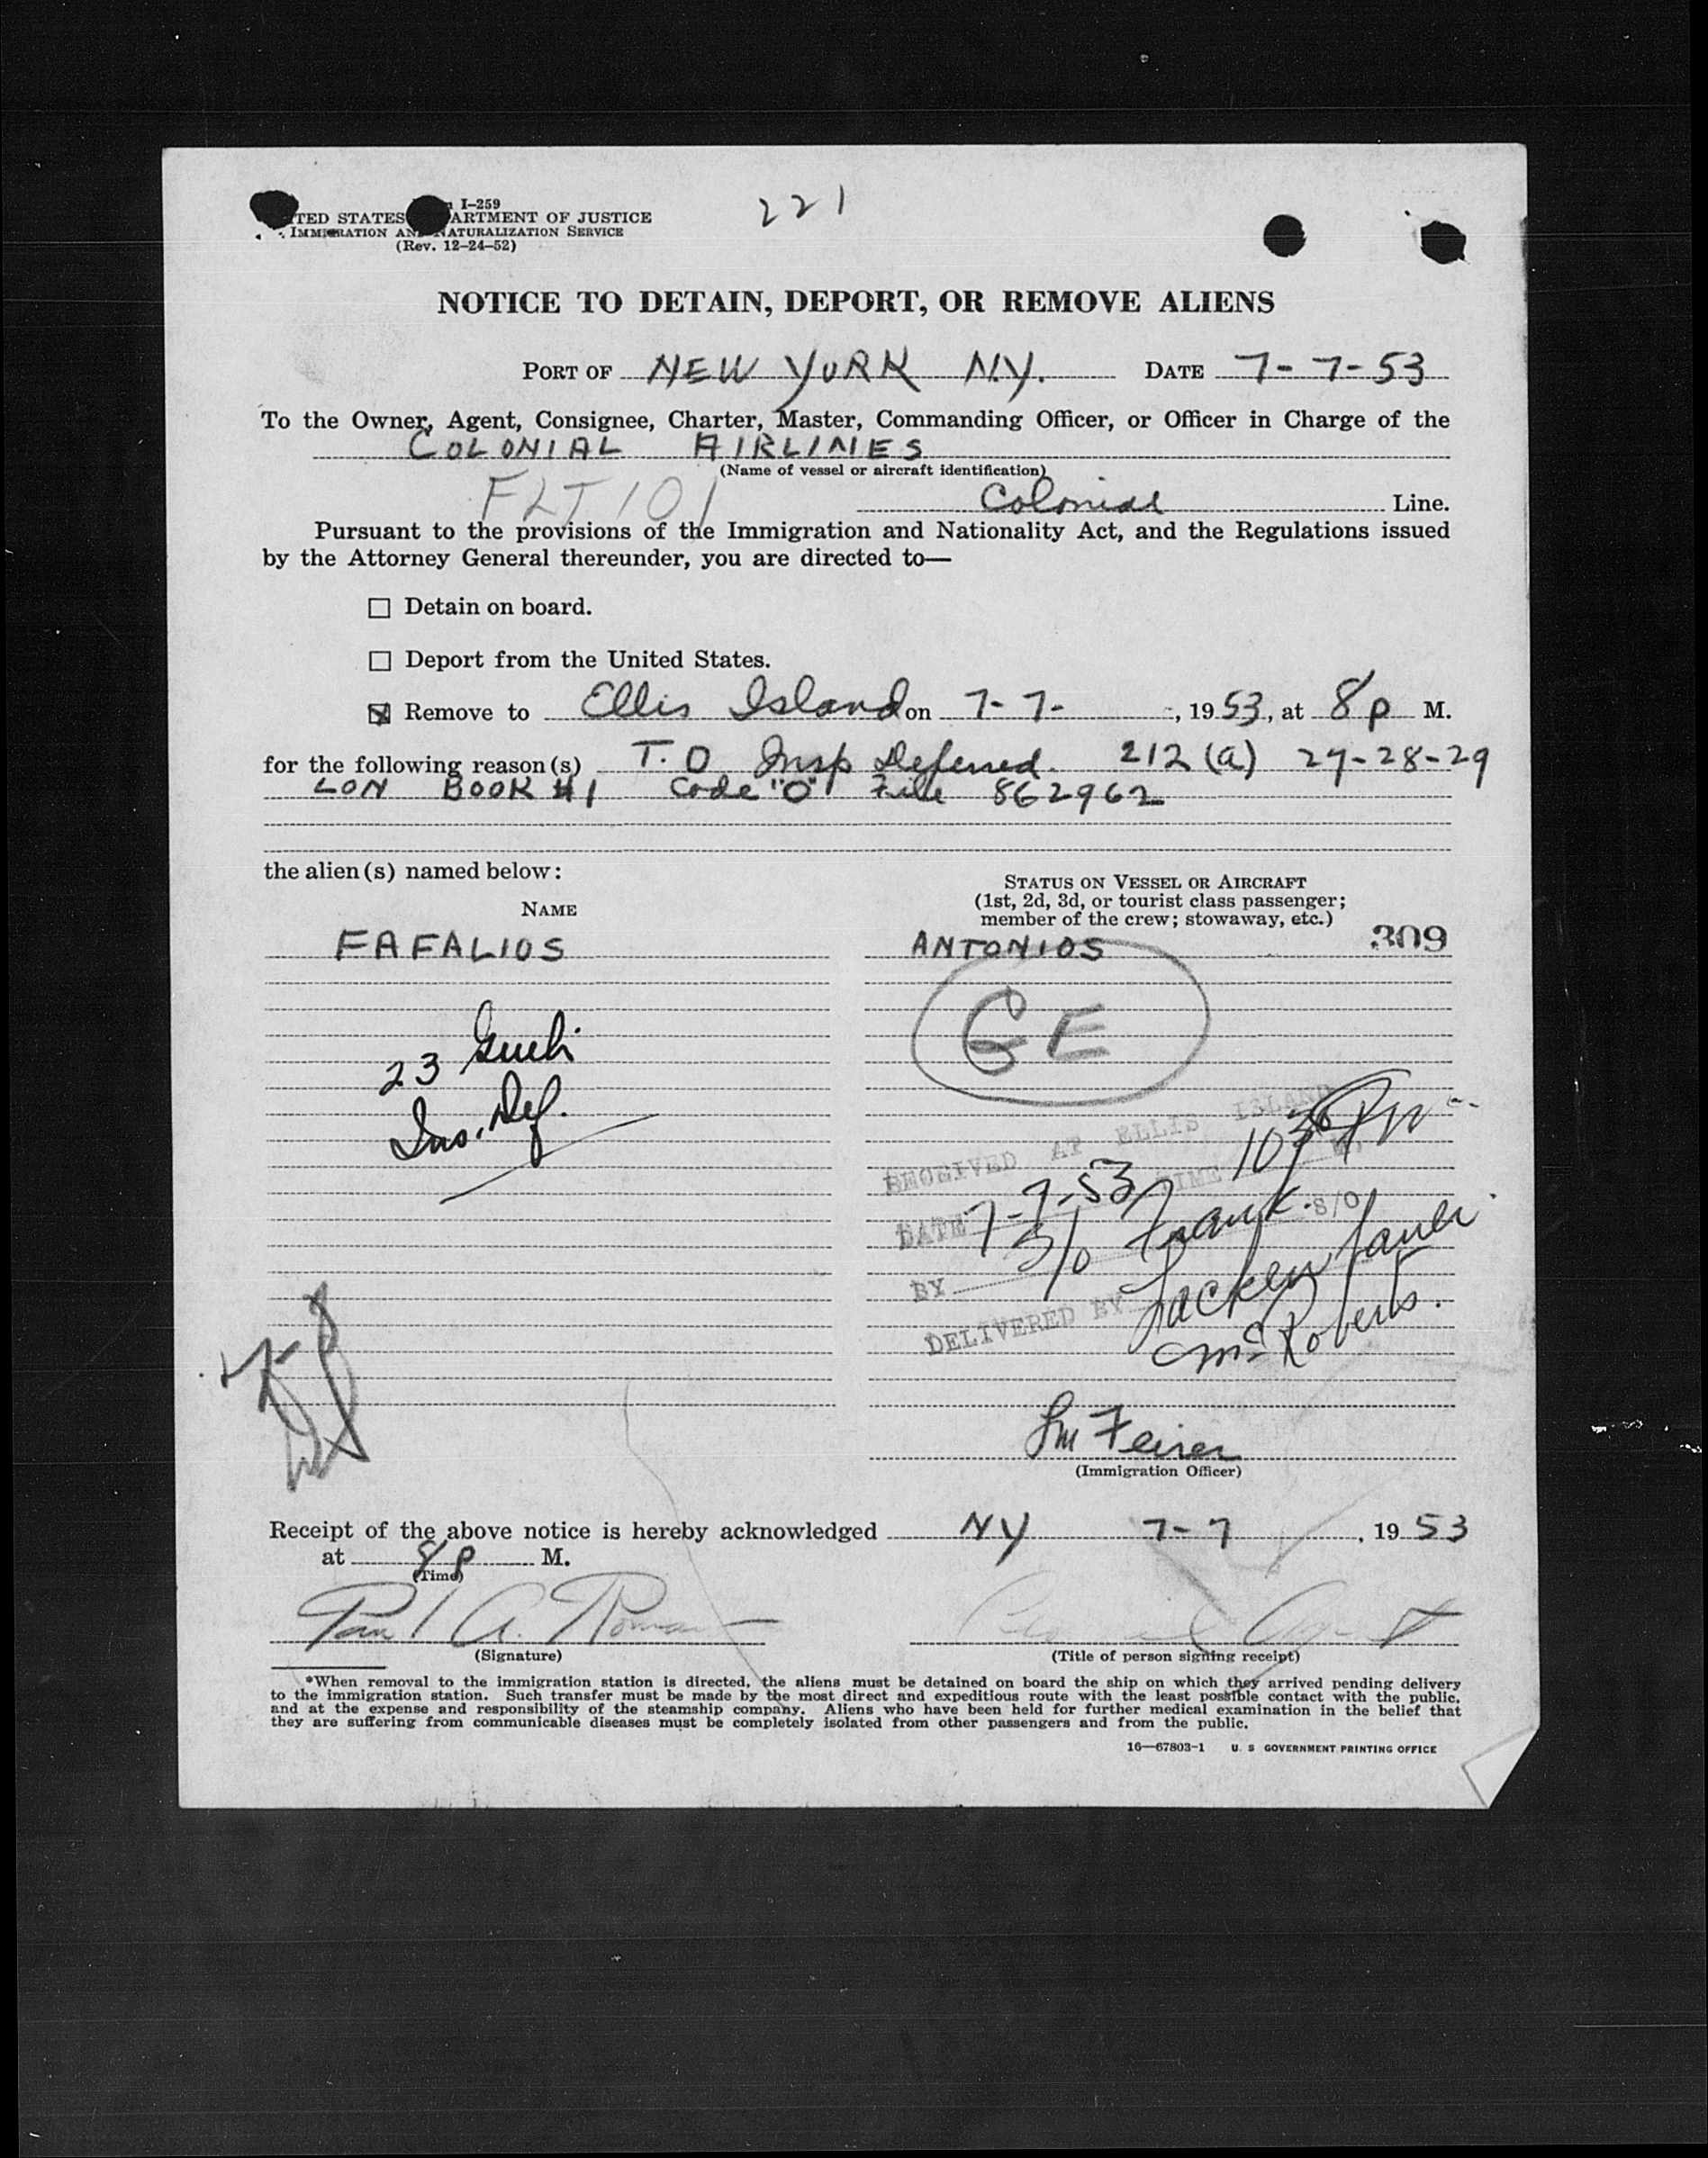 221
I-259
TED STATES ARTMENT OF JUSTICE
IMMIGRATION AND NATURALIZATION SERVICE
(Rev. 12-24-52)
NOTICE TO DETAIN, DEPORT, OR REMOVE ALIENS
PORT OF NEW YORK N.Y. DATE 7-7-53
To the Owner, Agent, Consignee, Charter, Master, Commanding Officer, or Officer in Charge of the
COLONIAL AIRLINES
(Name of vessel or aircraft identification)
FLT 101 Colonial Line.
Pursuant to the provisions of the Immigration and Nationality Act, and the Regulations issued
by the Attorney General thereunder, you are directed to—
☐ Detain on board.
☐ Deport from the United States.
☒ Remove to Ellis Island on 7-7-, 1953, at 8 p M.
for the following reason(s) T.O Insp Deferred. 212 (a) 27-28-29
LON BOOK #1 Code "O" File 862962
the alien(s) named below:
STATUS ON VESSEL OR AIRCRAFT
(1st, 2d, 3d, or tourist class passenger;
member of the crew; stowaway, etc.)
NAME
309
FAFALIOS ANTONIOS
GE
23
Ins. Def.
RECEIVED AT ELLIS ISLAND
DATE 7-7-53 TIME 10 30 M.
BY S/O Frank S/O
DELIVERED BY
McRoberts.
(Immigration Officer)
Receipt of the above notice is hereby acknowledged NY 7-7, 1953
at 8 p M.
(Time)
Paul A. Roman
(Signature)
Colonial Agent
(Title of person signing receipt)
*When removal to the immigration station is directed, the aliens must be detained on board the ship on which they arrived pending delivery
to the immigration station. Such transfer must be made by the most direct and expeditious route with the least possible contact with the public,
and at the expense and responsibility of the steamship company. Aliens who have been held for further medical examination in the belief that
they are suffering from communicable diseases must be completely isolated from other passengers and from the public.
16—67803-1 U. S GOVERNMENT PRINTING OFFICE